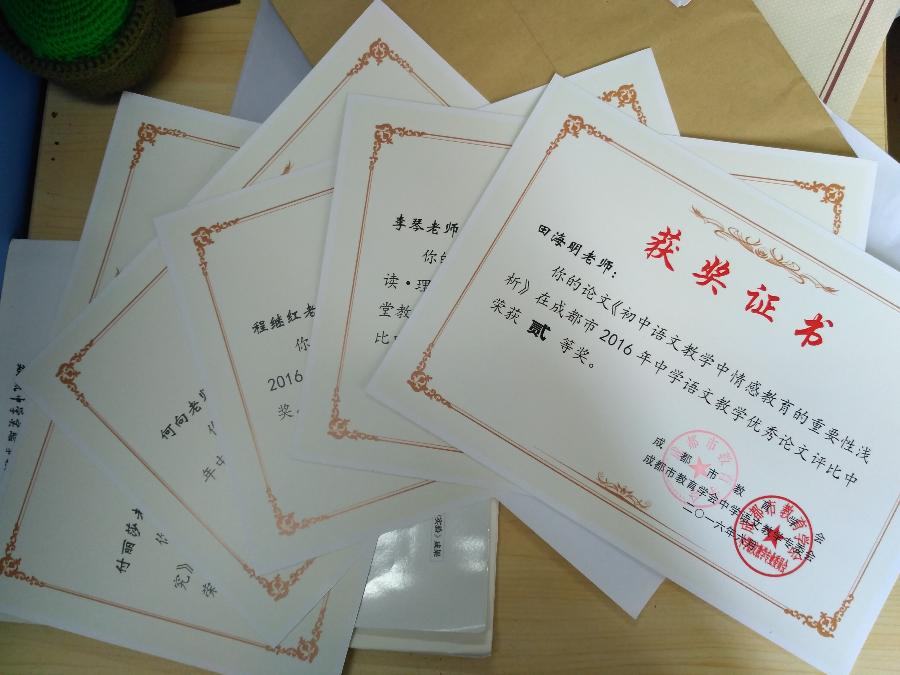 获奖证书
田海明老师：
你的论文《初中语文教学中情感教育的重要性浅
析》在成都市2016年中学语文教学优秀论文评比中
荣获 贰 等奖。
成都市教育学会
成都市教育学会中学语文教学专委会
二〇一六年六月
成都市教育学会
李琴老师
你的
读·理
堂教
比
程继红老
你
2016
奖
何向老师
年中
付丽莎
你
究》荣